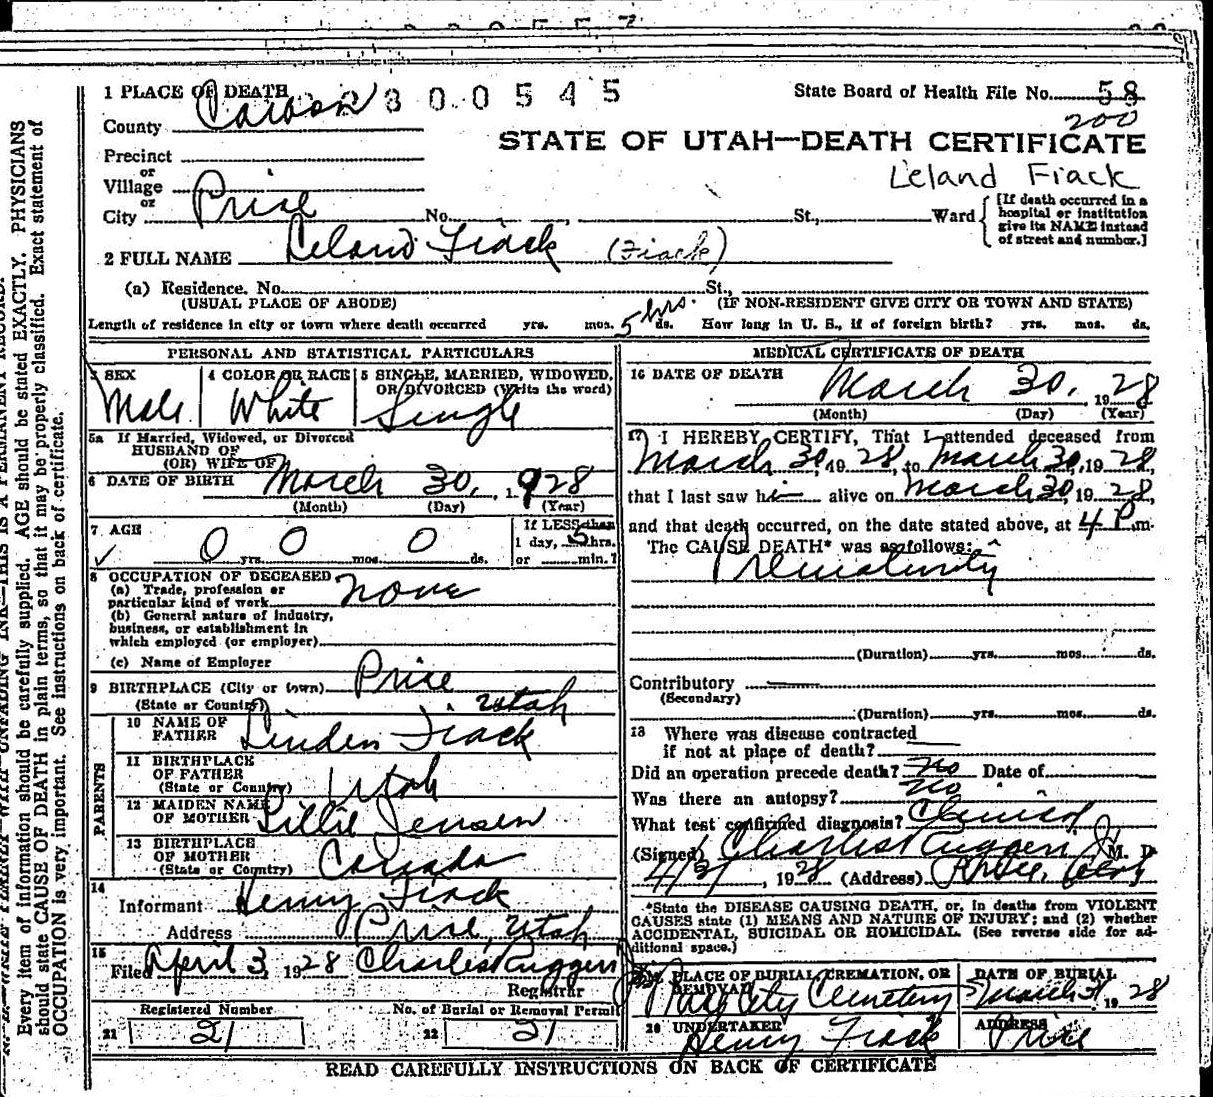 1 PLACE OF DEATH 2 8 0 0 5 4 5 State Board of Health File No. 58
County Carbon 200
STATE OF UTAH—DEATH CERTIFICATE
Precinct
or
Village Leland Fiack
or
City Price No. St., Ward
[If death occurred in a
hospital or institution
give its NAME instead
of street and number.]
2 FULL NAME Leland Fiack (Fiack)
(a) Residence. No. St.,
(USUAL PLACE OF ABODE) (IF NON-RESIDENT GIVE CITY OR TOWN AND STATE)
Length of residence in city or town where death occurred yrs. mos. 5 hrs. ds. How long in U. S., if of foreign birth? yrs. mos. ds.
PERSONAL AND STATISTICAL PARTICULARS
3 SEX
Male
4 COLOR OR RACE
White
5 SINGLE, MARRIED, WIDOWED,
OR DIVORCED (Write the word)
Single
5a If Married, Widowed, or Divorced
HUSBAND OF
(OR) WIFE OF
6 DATE OF BIRTH March 30, 1928
(Month) (Day) (Year)
7 AGE
0 yrs. 0 mos. 0 ds.
If LESS than
1 day, 5 hrs.
or min.?
8 OCCUPATION OF DECEASED
(a) Trade, profession or
particular kind of work none
(b) General nature of industry,
business, or establishment in
which employed (or employer)
(c) Name of Employer
9 BIRTHPLACE (City or town) Price
(State or Country) Utah
PARENTS
10 NAME OF
FATHER Linden Fiack
11 BIRTHPLACE
OF FATHER
(State or Country) Utah
12 MAIDEN NAME
OF MOTHER Lillie Jensen
13 BIRTHPLACE
OF MOTHER
(State or Country) Canada
14
Informant Henry Fiack
Address Price, Utah
15
Filed April 3, 1928 Charles Ruggeri
Registrar
Registered Number No. of Burial or Removal Permit
21 21 22 21
MEDICAL CERTIFICATE OF DEATH
16 DATE OF DEATH March 30, 1928
(Month) (Day) (Year)
17 I HEREBY CERTIFY, That I attended deceased from
March 30, 1928, to March 30, 1928,
that I last saw him alive on March 30, 1928,
and that death occurred, on the date stated above, at 4 P.m.
The CAUSE DEATH* was as follows:
Prematurity
(Duration) yrs. mos. ds.
Contributory
(Secondary)
(Duration) yrs. mos. ds.
18 Where was disease contracted
if not at place of death?
Did an operation precede death? no Date of
Was there an autopsy? no
What test confirmed diagnosis? Clinical
(Signed) Charles Ruggeri Jr M. D.
, 1928 (Address) Price, Utah
*State the DISEASE CAUSING DEATH, or, in deaths from VIOLENT
CAUSES state (1) MEANS AND NATURE OF INJURY; and (2) whether
ACCIDENTAL, SUICIDAL OR HOMICIDAL. (See reverse side for ad-
ditional space.)
PLACE OF BURIAL, CREMATION, OR
REMOVAL
Price City Cemetery
DATE OF BURIAL
March 31 1928
20 UNDERTAKER
Henry Fiack
ADDRESS
Price
READ CAREFULLY INSTRUCTIONS ON BACK OF CERTIFICATE
Every item of information should be carefully supplied. AGE should be stated EXACTLY. PHYSICIANS
should state CAUSE OF DEATH in plain terms, so that it may be properly classified. Exact statement of
OCCUPATION is very important. See instructions on back of certificate.